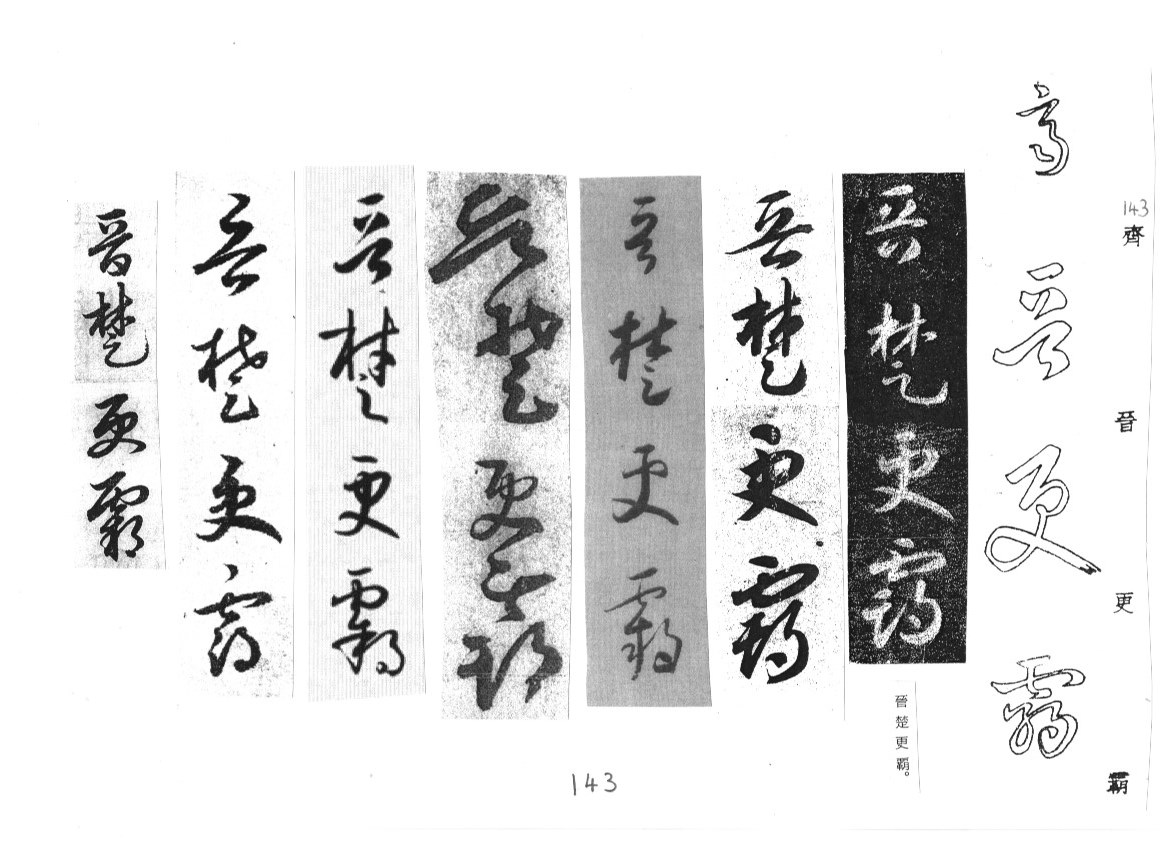 143
齊 晉 更 霸
齊晉更霸
晉楚更霸
晉楚更覇。
晉楚更霸
晉楚更霸
晉楚更霸
晉楚更霸
晉楚更霸
晉楚更霸
143